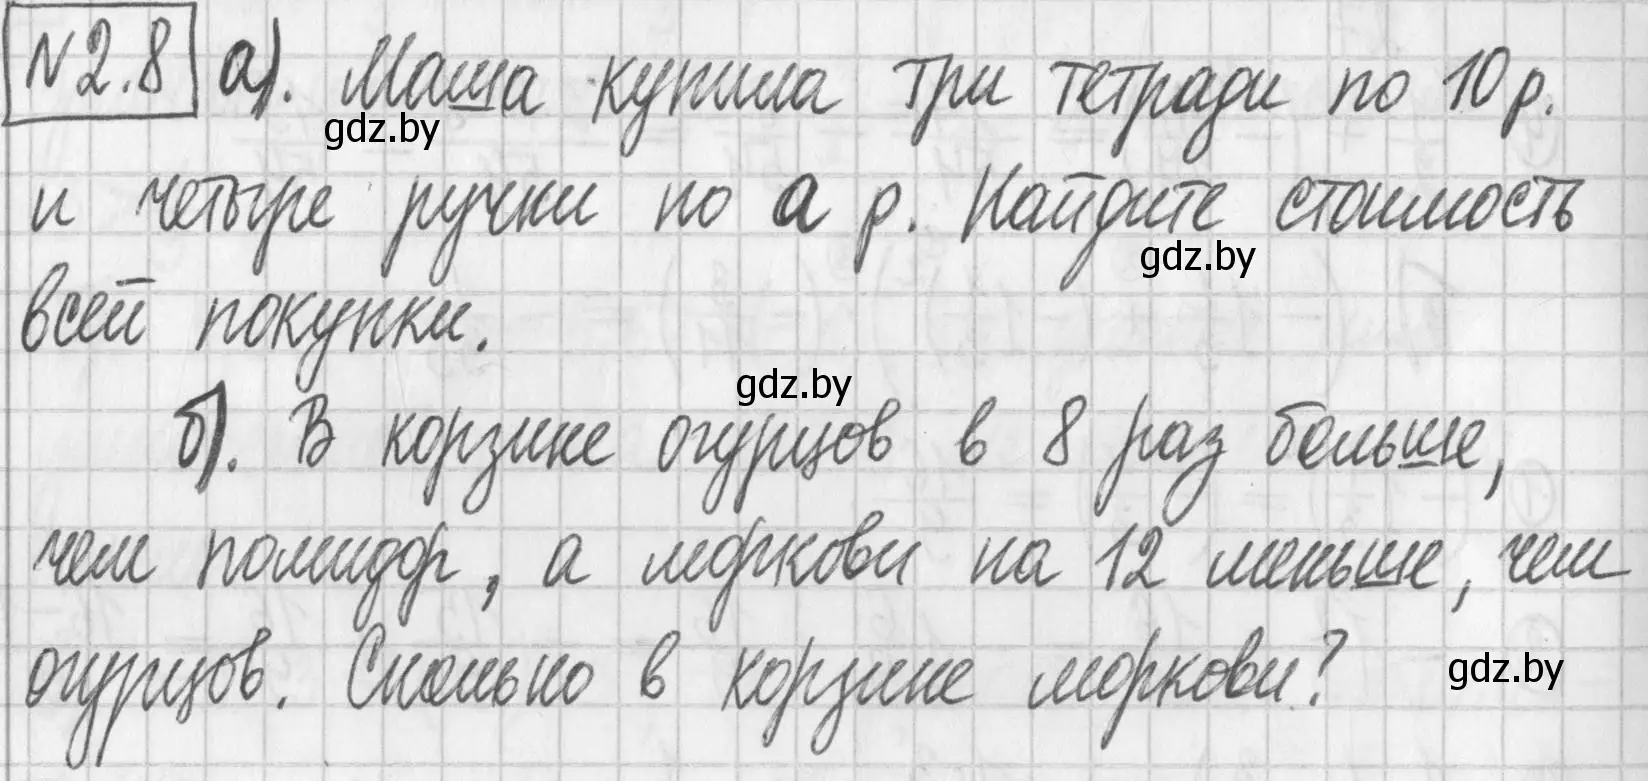 №2.8 а). Маша купила три тетради по 10 р.
gdz.by
и четыре ручки по а р. Найдите стоимость
gdz.by
всей покупки.
gdz.by
б). В корзине огурцов в 8 раз больше,
чем помидор, а моркови на 12 меньше, чем
огурцов. Сколько в корзине моркови?
gdz.by